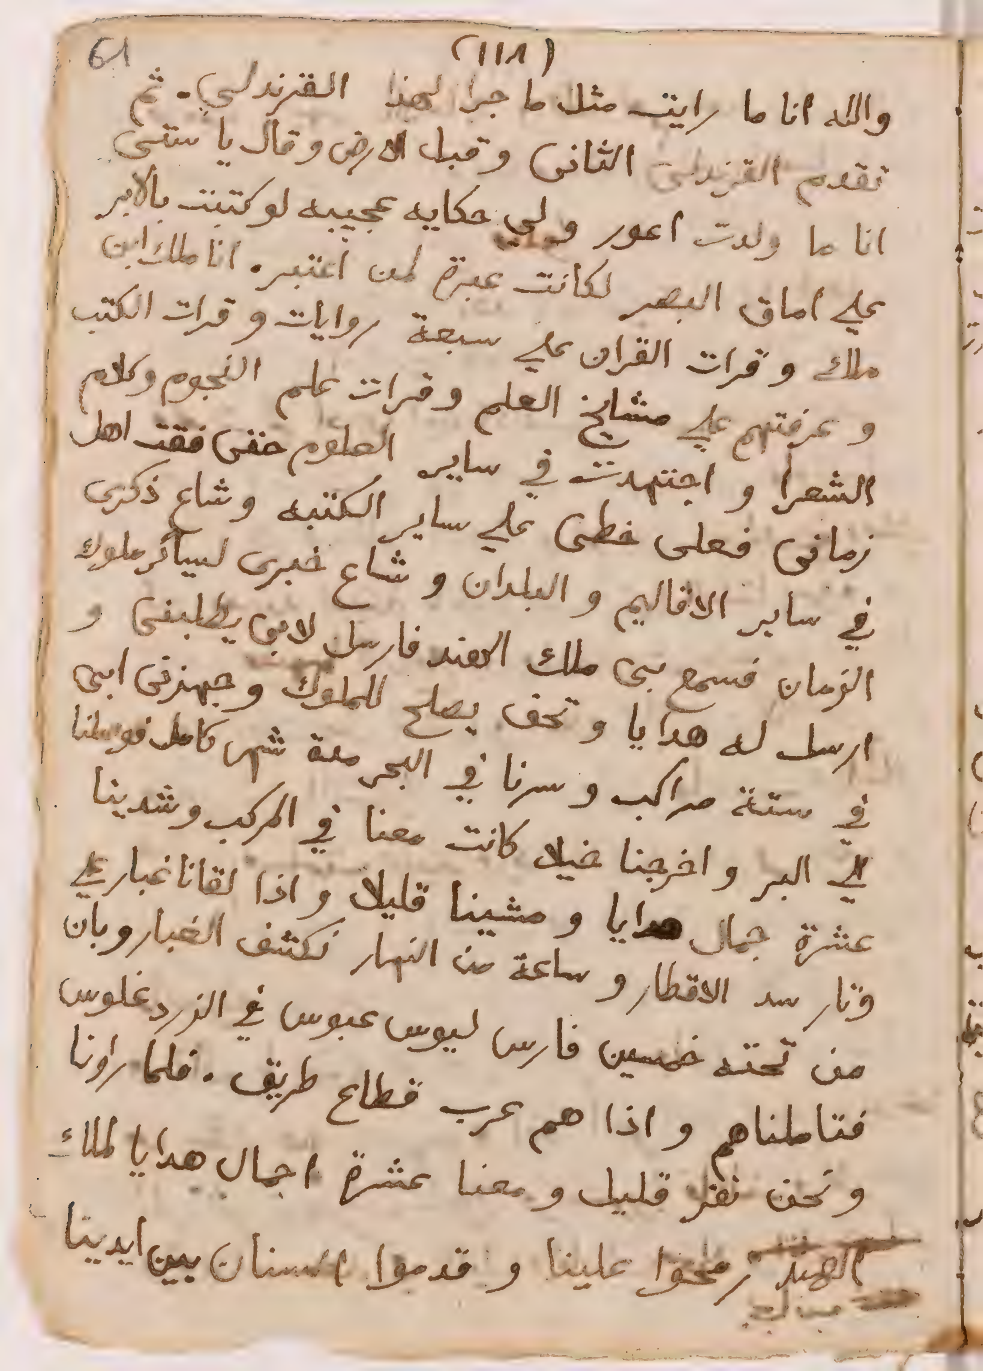 61
(١١٨)
والله انا ما رايت مثل ما جرا لهذا القرندلي. ثم
تقدم القرندلى الثانى وقبل الارض وقال يا ستى
انا ما ولدت اعور ولي حكايه عجيبه لو كتبت بالابر
علي اماق البصر لكانت عبرة لمن اعتبر. انا ملك ابن
ملك وقرات القران علي سبعة روايات وقرات الكتب
وعرضتهم علي مشايخ العلم وقرات علم النجوم وكلام
الشعرا واجتهدت في ساير العلوم حتى فقت اهل
زمانى فعلى خطى علي ساير الكتبه وشاع ذكرى
في ساير الاقاليم والبلدان وشاع خبرى لساير ملوك
الزمان فسمع بى ملك الهند فارسل لابى يطلبنى و
ارسل له هدايا وتحف يصلح للملوك وجهزنى ابى
في ستة مراكب وسرنا في البحر مدة شهر كامل فوصلنا
الي البر واخرجنا خيلا كانت معنا في المركب وشدينا
عشرة جمال هدايا ومشينا قليلا واذا لقانا غبار علي
وثار سد الاقطار وساعة من النهار نكشف الغبار وبان
من تحته خمسين فارس ليوس عبوس في الزرد غلوس
فتاملناهم واذا هم عرب قطاع طريق. فلما راونا
ونحن نفر قليل ومعنا عشرة اجمال هدايا لملك
الهند رمحوا علينا وقدموا السنان بين ايدينا